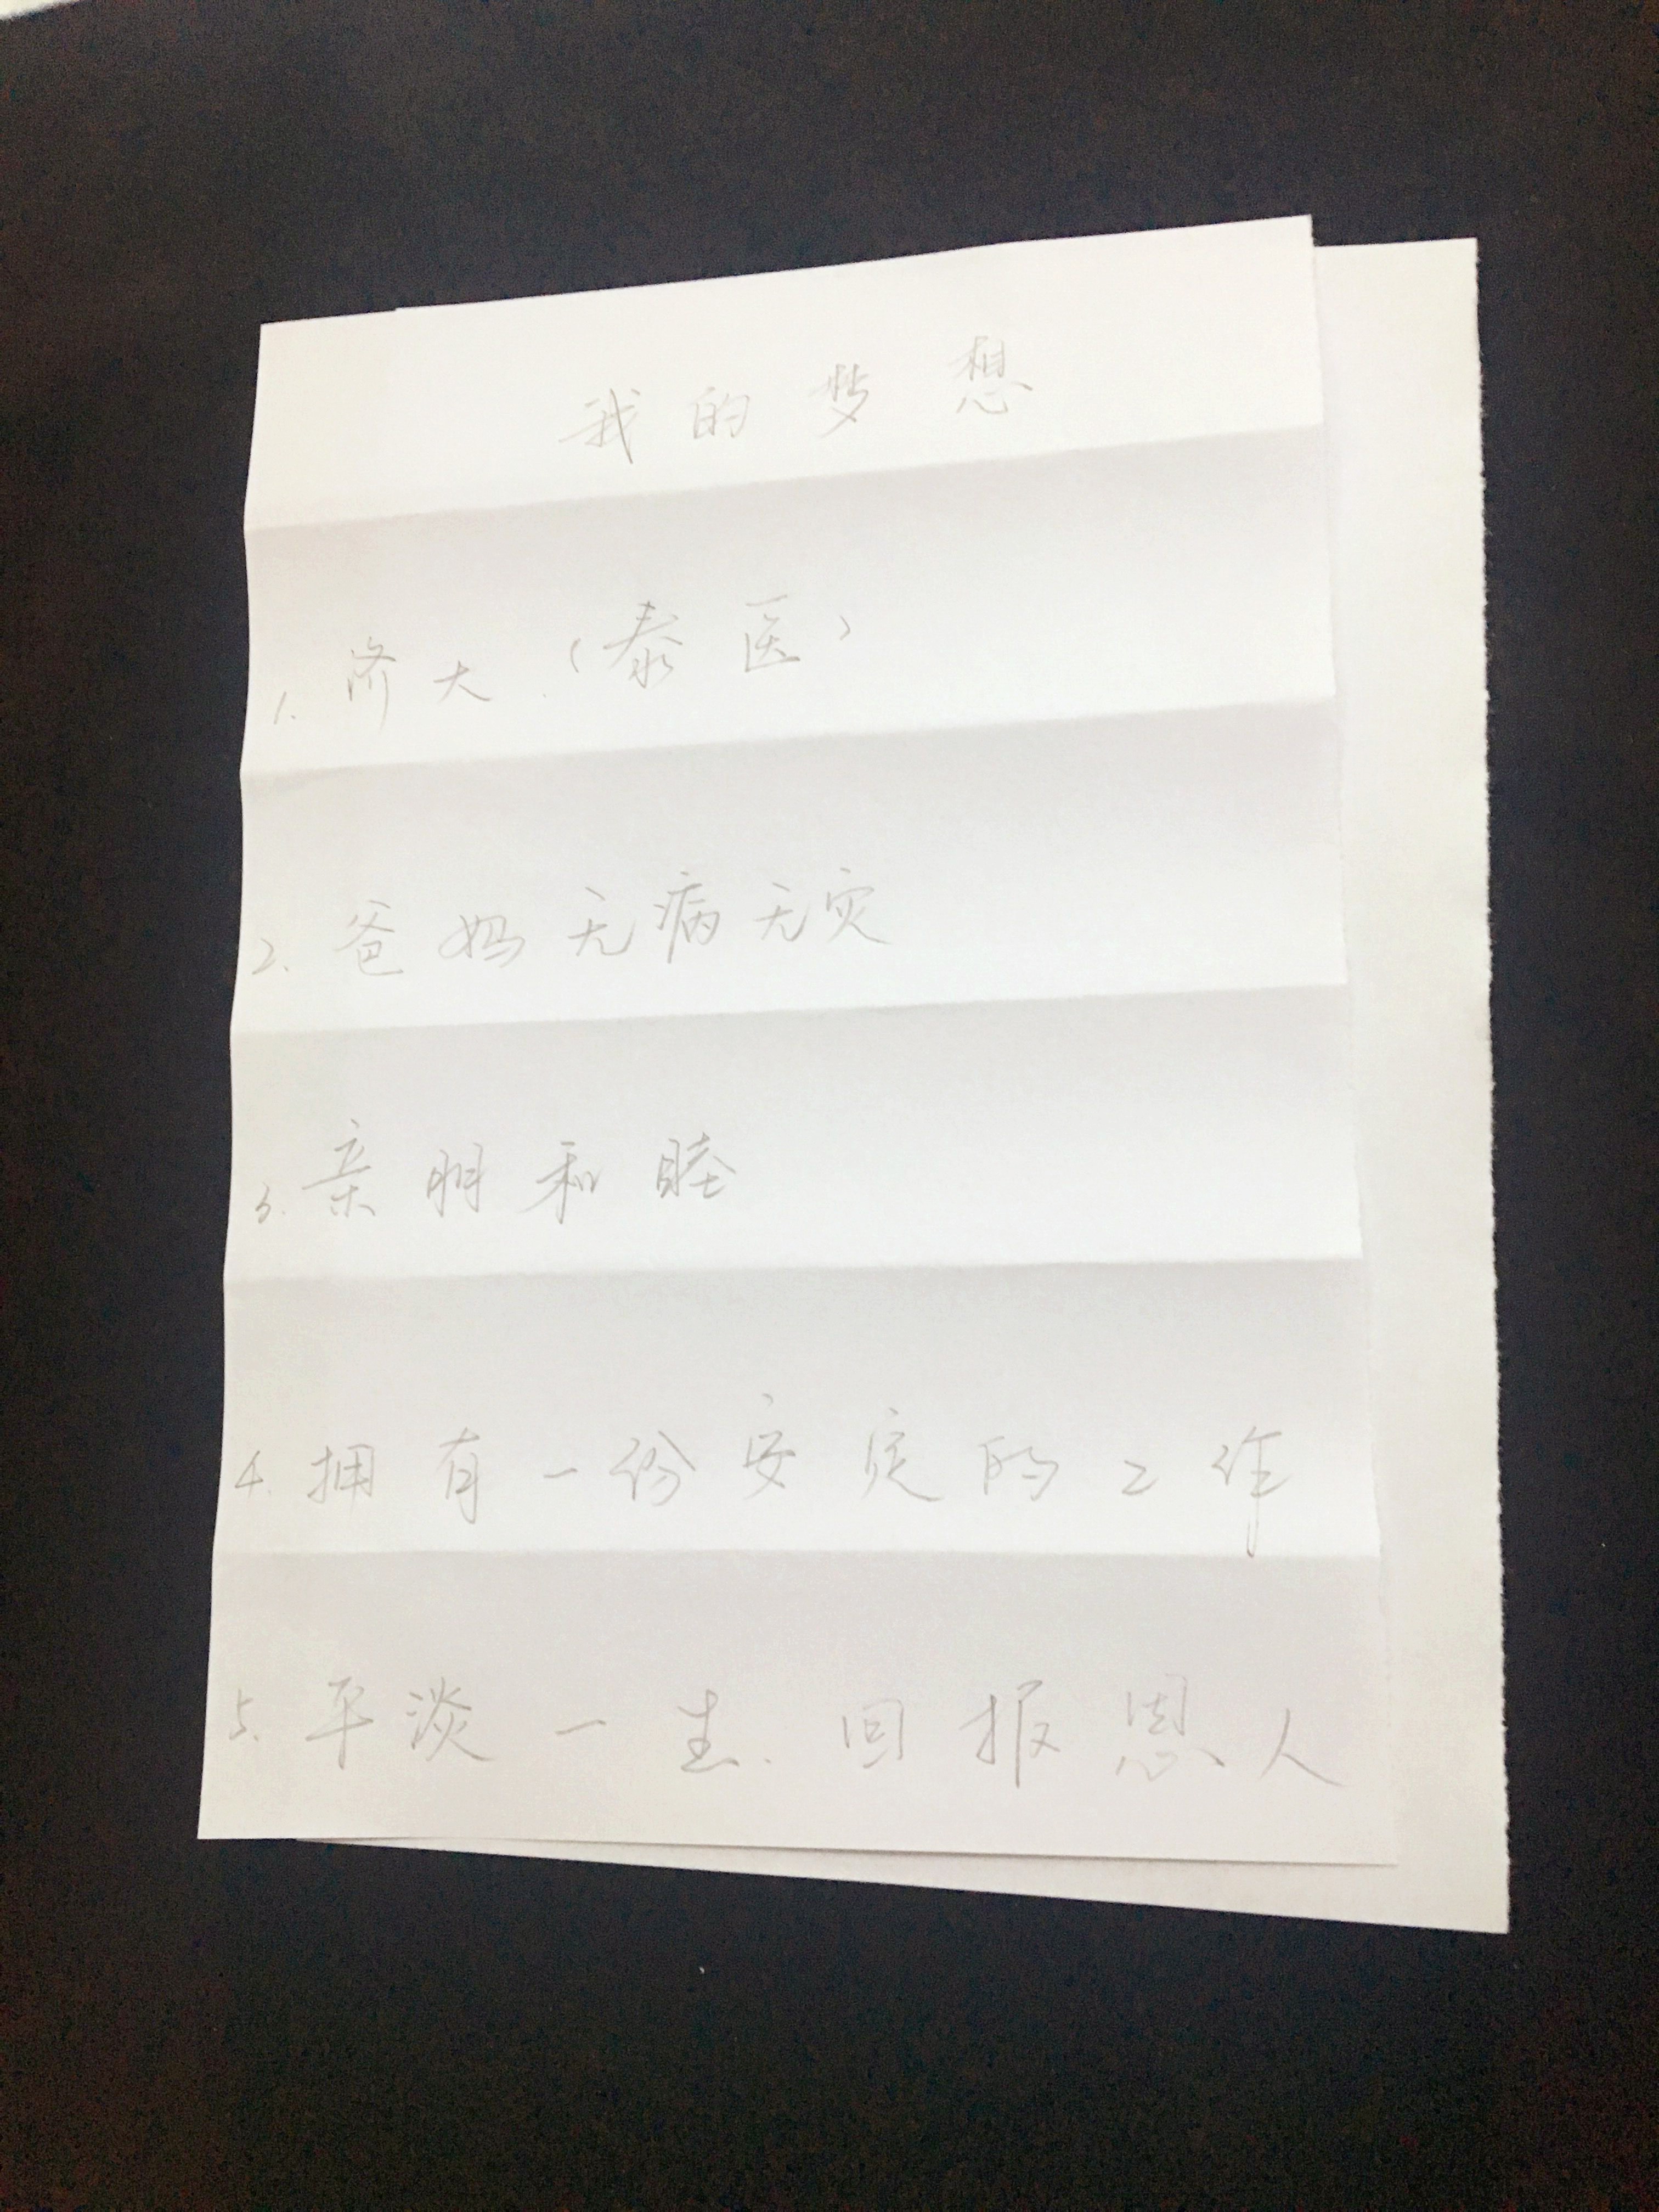 我的梦想
1. 济大.(泰医)
2. 爸妈无病无灾
3. 亲朋和睦
4. 拥有一份安定的工作
5. 平淡一生.回报恩人